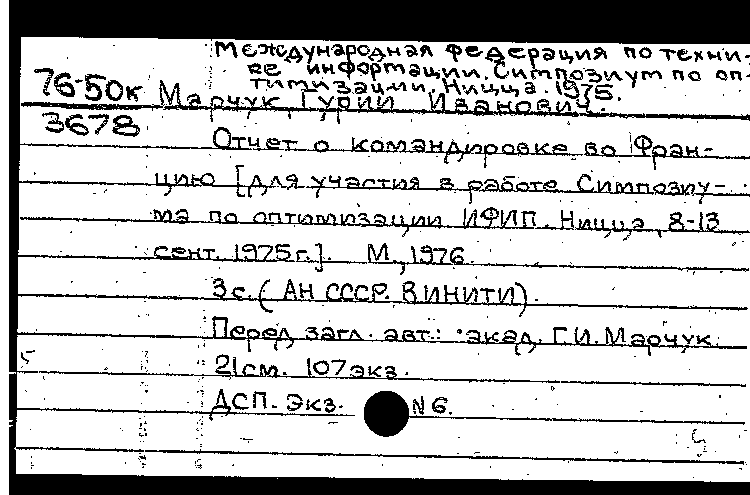 Международная федерация по техни-
ке информации. Симпозиум по оп-
тимизации, Ницца. 1975.
76-50к Марчук, Гурий Иванович.
3678
Отчет о командировке во Фран-
цию [для участия в работе Симпозиу-
ма по оптимизации ИФИП. Ницца, 8-13
сент. 1975г.]. М., 1976.
3с. (АН СССР. ВИНИТИ).
Перед загл. авт.: акад. Г.И. Марчук.
21см. 107экз.
ДСП. Экз. N 6.